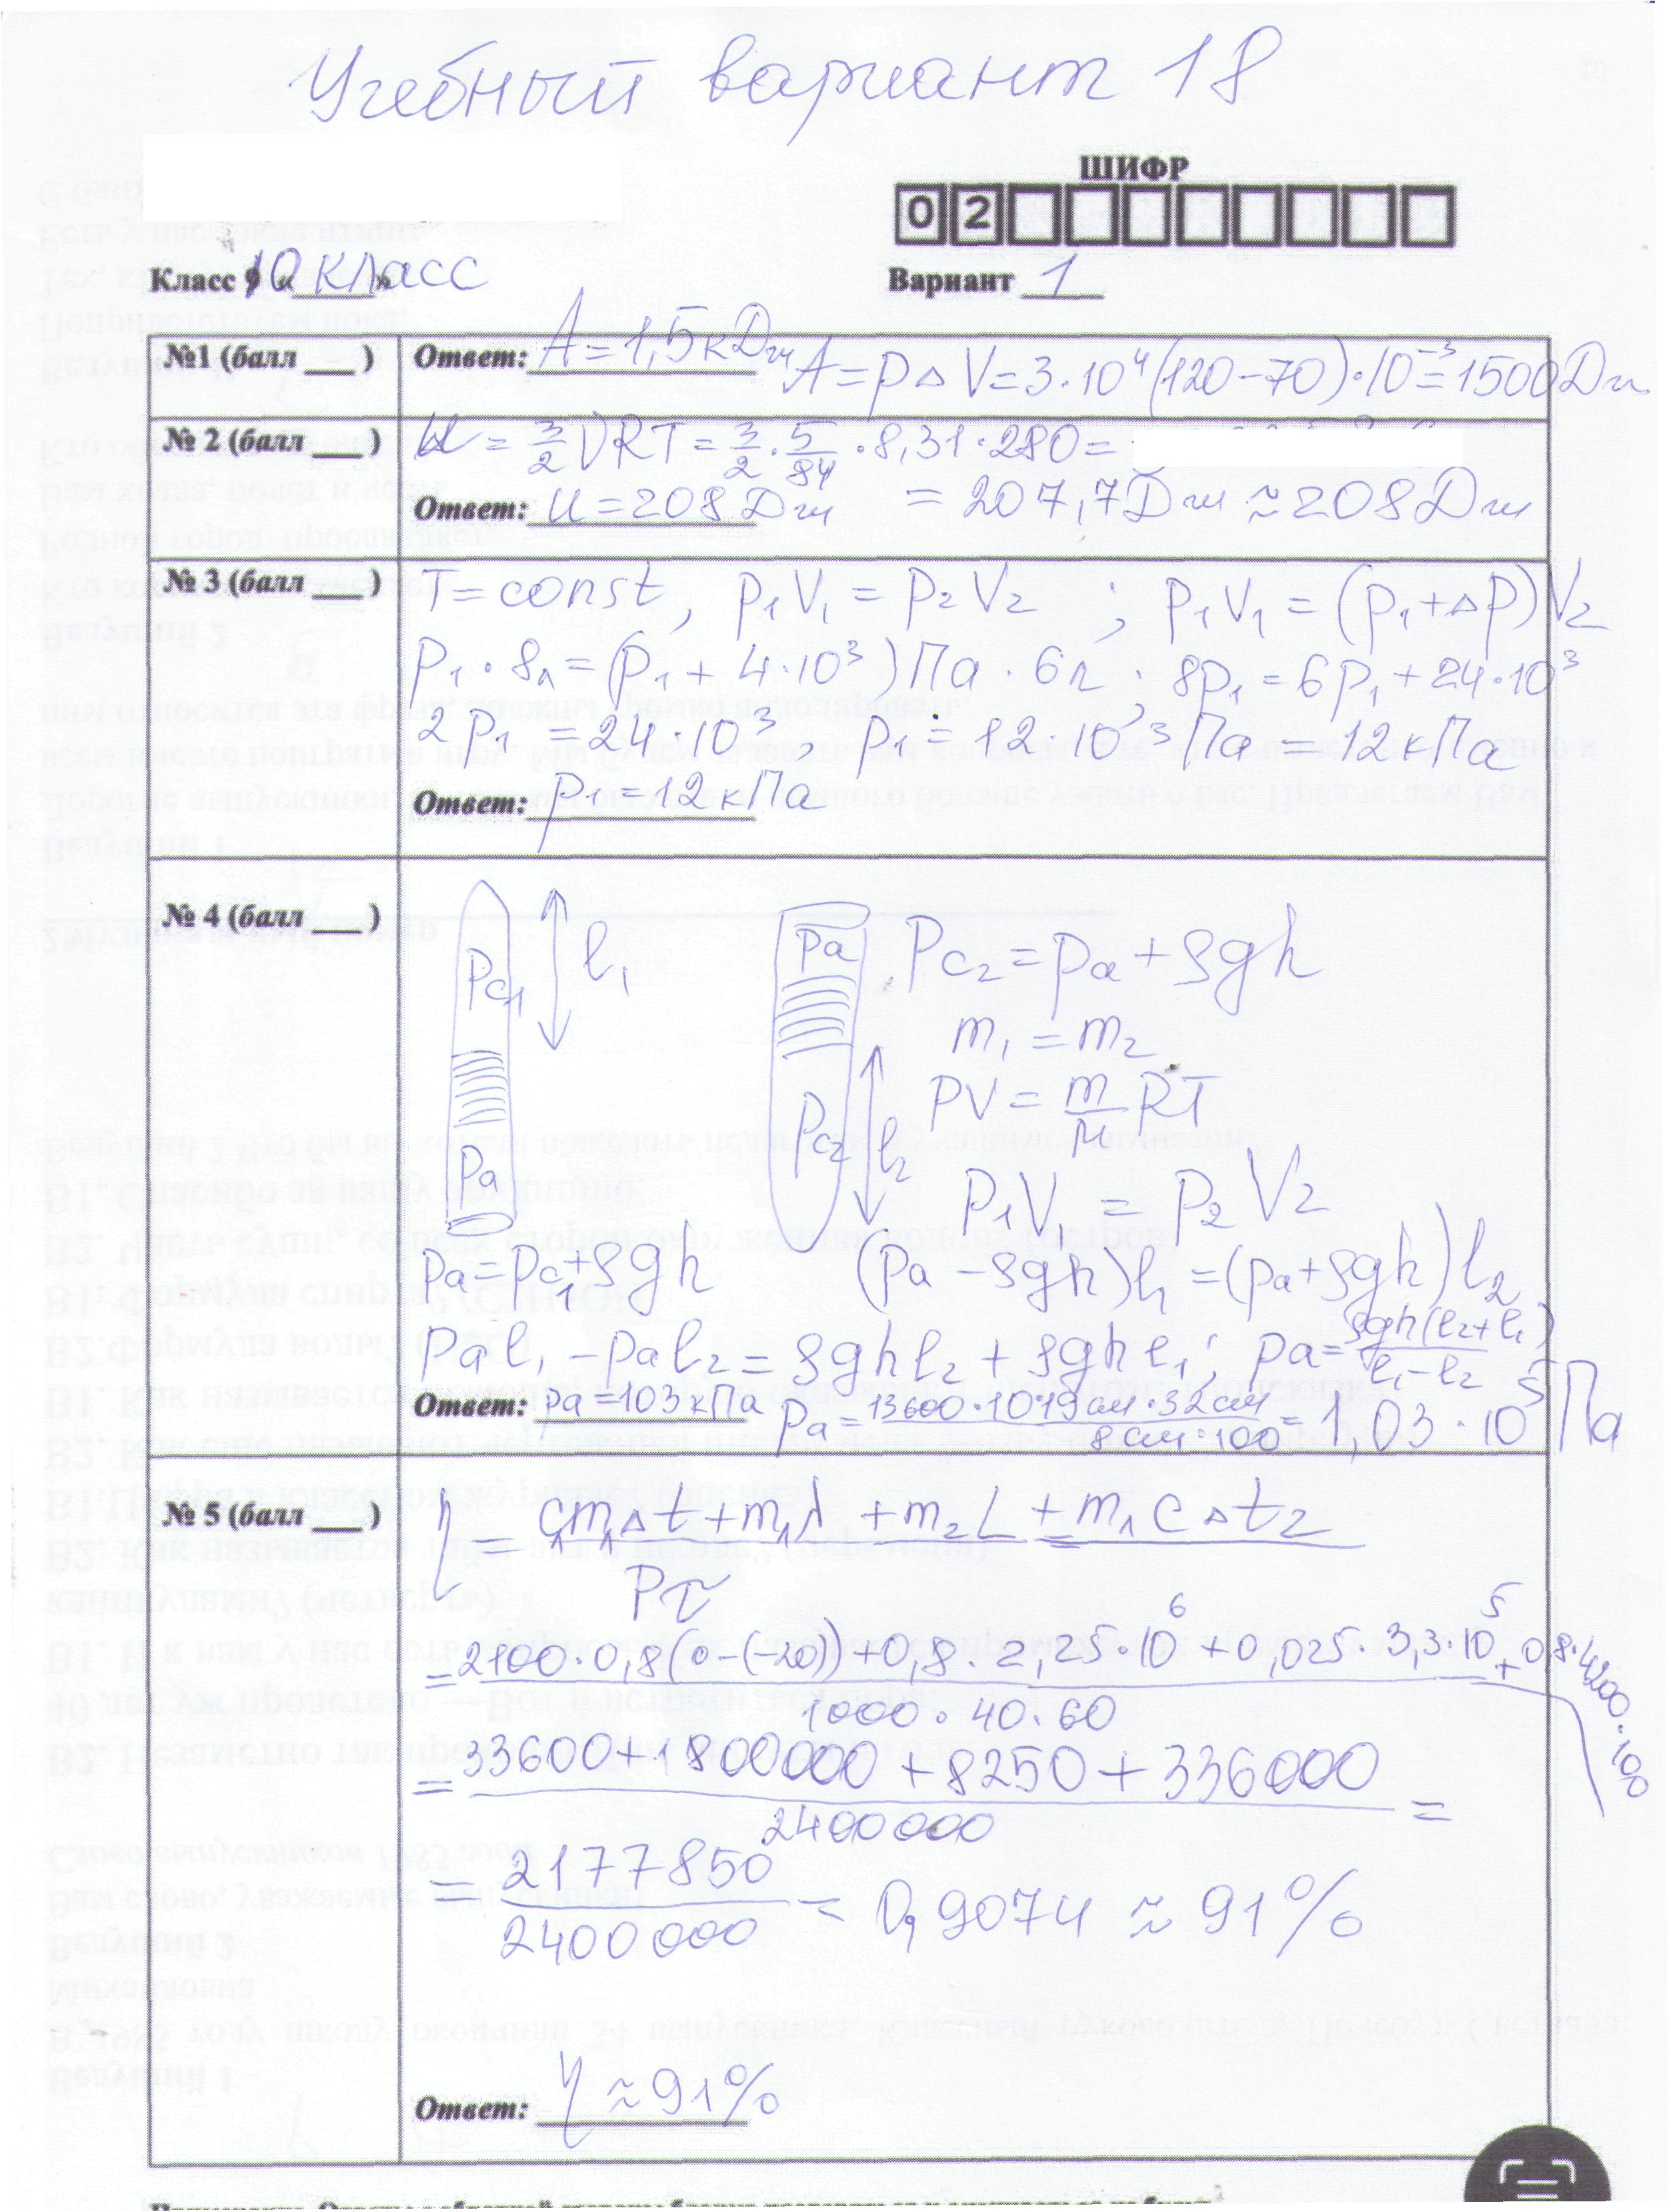 Учебный вариант 18
ШИФР
0 2
Класс 9 « 10 класс »
Вариант 1
№1 (балл ___)
Ответ: A = 1,5 кДж A = p Δ V = 3·10⁴(120-70)·10⁻³ = 1500 Дж
№ 2 (балл ___)
U = 3/2 νRT = 3/2 · 5/84 · 8,31 · 280 =
Ответ: U = 208 Дж = 207,7 Дж ≈ 208 Дж
№ 3 (балл ___
T = const, p₁V₁ = p₂V₂ ; p₁V₁ = (p₁+Δp)V₂
p₁·8л = (p₁ + 4·10³)Па · 6л ; 8p₁ = 6p₁ + 24·10³
2p₁ = 24·10³, p₁ = 12·10³ Па 12 кПа
Ответ: p₁ = 12 кПа
№ 4 (балл ___)
Pc₁
l₁
Pa
Pa
Pc₂
l₂
Pc₂ = pa + ρgh
m₁ = m₂
PV = m/μ RT
P₁V₁ = P₂V₂
pa = pc₁ + ρgh (pa - ρgh)l₁ = (pa + ρgh)l₂
pal₁ - pal₂ = ρghl₂ + ρghl₁ ; pa = ρgh(l₂+l₁)/l₁-l₂
Ответ: pa = 103 кПа pa = 13600·10·19см·32см/8см·100 = 1,03·10⁵ Па
№ 5 (балл ___)
η = c₁m₁Δt + m₁λ + m₂L + m₁cΔt₂ / Pτ
= 2100·0,8(0-(-20)) + 0,8·2,25·10⁶ + 0,025·3,3·10⁵ + 0,8·4200·100 / 1000·40·60
= 33600 + 1800000 + 8250 + 336000 / 2400000 =
= 2177850 / 2400000 = 0,9074 ≈ 91%
Ответ: η ≈ 91%